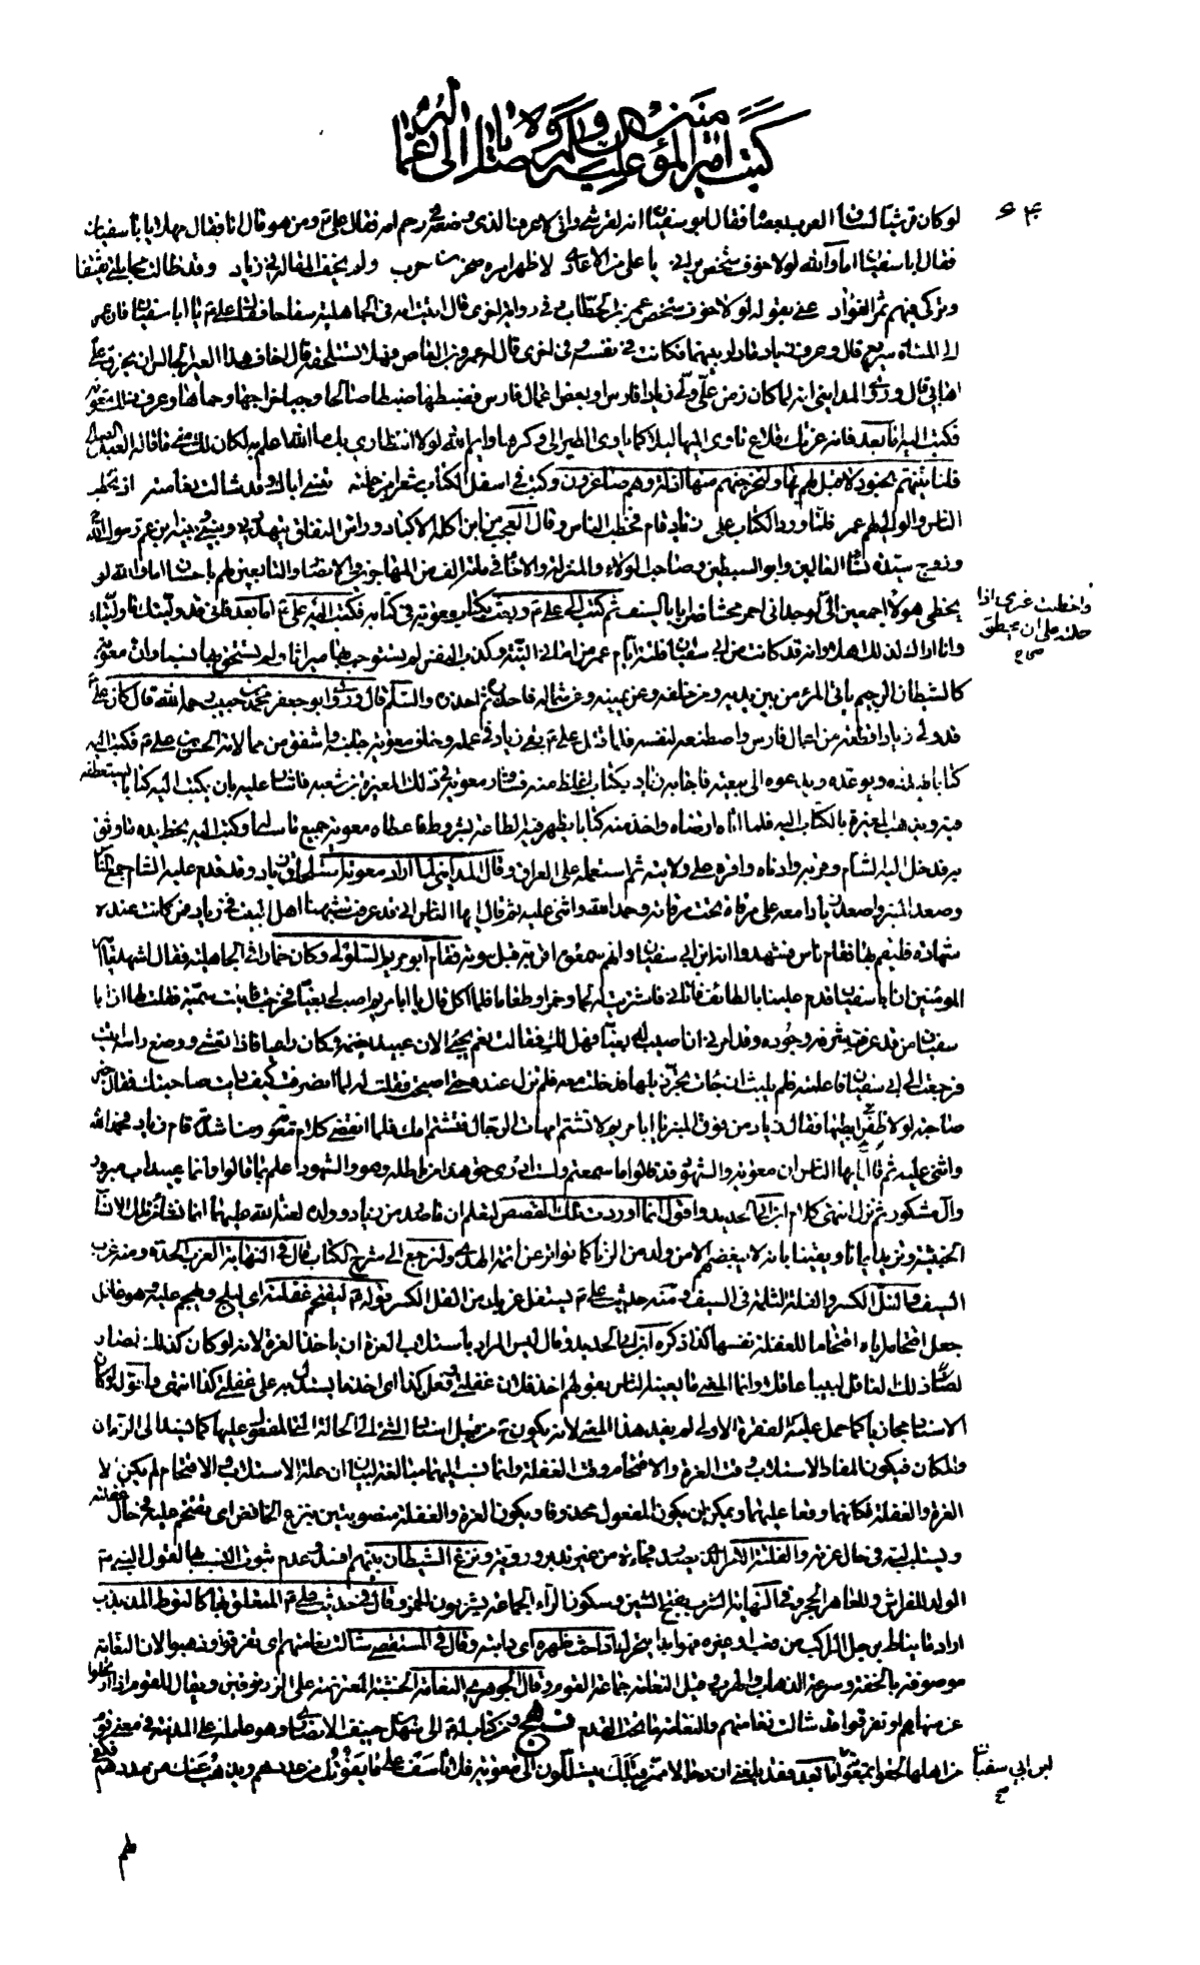 كتب امير المؤمنين عليه
لو كان قرشيا لساق العرب بعصاه فقال ابو سفيان انه لقرشي واني لاعرف الذي وضعه في رحم امه فقال علي ع ومن هو قال انا فقال مهلا يا ابا سفيان
فقال ابا سفيان اما والله لولا خوف شخص يراني يا علي من الاعادي لاظهر امره صخر بن حرب ولم يخف المقالة في زياد وقد طالت مجاملتي ثقيفا
وتركي فيهم ثمر الفؤاد عنى بقوله لولا خوف شخص عمر بن الخطاب وفي رواية اخرى قال اتيت امه في الجاهلية سفاحا فقال علي ع مه يا ابا سفيان فان عمر
الى المساءة سريع قال وعرف زياد ما دار بينهما فكانت في نفسه وفي اخرى قال له عمرو بن العاص فهلا تستلحقه قال اخاف هذا العير الجالس ان يخرق علي
اهابي قال وروى المدايني انه لما كان زمن علي ولى زيادا فارس او بعض اعمال فارس فضبطها ضبطا صالحا وجبى خراجها وحماها وعرف ذلك معوية
فكتب اليه اما بعد فانه غرتك قلاع تاوي اليها ليلا كما ياوي الطير الى وكرها وايم الله لولا انتظاري بك ما الله اعلم به لكان لك مني ما قاله العبد الصالح
فلناتينهم بجنود لا قبل لهم بها ولنخرجنهم منها اذلة وهم صاغرون وكتب في اسفل الكتاب شعرا من جملته تنسى اباك وقد شالت نعامته اذ يخطب
الناس والوالي لهم عمر فلما ورد الكتاب على زياد قام فخطب الناس وقال العجب من ابن اكلة الاكباد وراس النفاق يتهددني وبيني وبينه ابن عم رسول الله
وزوج سيدة نساء العالمين وابو السبطين وصاحب الولاء والمنزلة والاخاء في مائة الف من المهاجرين والانصار والتابعين لهم باحسان اما والله لو
يخطى هولاء اجمعين الي لوجدني احمر محشا ضرابا بالسيف ثم كتب الى علي ع وبعث بكتاب معوية في كتابه فكتب اليه علي ع اما بعد فاني قد وليتك ما وليتك
وانا اراك لذلك اهلا وانه قد كانت من ابي سفيان فلتة ايام عمر من اماني التيه وكذب النفس لم تستوجب بها ميراثا ولم تستحق بها نسبا وان معوية
كالشيطان الرجيم ياتي المرء من بين يديه ومن خلفه وعن يمينه وعن شماله فاحذره ثم احذره والسلام قال وروى ابو جعفر محمد بن حبيب رحمه الله قال كان علي
قد ولى زيادا قطعة من اعمال فارس واصطنعه لنفسه فلما قتل علي ع بقي زياد في عمله وخاف معوية جانبه واشفق من ممالاته الحسن بن علي ع فكتب اليه
كتابا يهدده ويوعده ويدعوه الى بيعته فاجابه زياد بكتاب اغلظ منه فشاور معوية في ذلك المغيرة بن شعبة فاشار عليه بان يكتب اليه كتابا يستعطفه
فيه ويذهب المغيرة بالكتاب اليه فلما اتاه ارضاه واخذ منه كتابا يظهر فيه الطاعة بشروط فاعطاه معوية جميع ما ساله وكتب اليه بخط يده ما وثق
به فدخل اليه الشام وقربه وادناه واقره على ولايته ثم استعمله على العراق وقال المدايني لما اراد معوية استلحاق زياد وقد قدم عليه الشام جمع الناس
وصعد المنبر واصعد زيادا معه على مرقاة تحت مرقاته وحمد الله واثنى عليه ثم قال ايها الناس اني قد عرفت شبهنا اهل البيت في زياد فمن كانت عنده
شهادة فليقم بها فقام ناس فشهدوا انه ابن ابي سفيان وانهم سمعوه اقر به قبل موته فقام ابو مريم السلولي وكان خمارا في الجاهلية فقال اشهد يا امير
المؤمنين ان ابا سفيان قدم علينا بالطائف فاتاني فاشتريت له لحما وخمرا وطعاما فلما اكل قال يا ابا مريم اصب لي بغيا فخرجت فاتيت سمية فقلت لها ان ابا
سفيان من قد عرفت شرفه وجوده وقد امرني ان اصيب له بغيا فهل لك فقالت نعم يجيء الان عبيد بغنمه وكان راعيا فاذا تعشى ووضع راسه اتيته
فرجعت الى ابي سفيان فاعلمته فلم يلبث ان جاءت تجر ذيلها فدخلت معه فلم تزل عنده حتى اصبحت فقلت له لما انصرفت كيف رايت صاحبتك فقال خير
صاحبة لولا ذفر ابطيها فقال زياد من فوق المنبر يا ابا مريم لا تشتم امهات الرجال فتشتم امك فلما انقضى كلام معوية ومناشدته قام زياد فحمد الله
واثنى عليه ثم قال ايها الناس ان معوية والشهود قد قالوا ما سمعتم ولست ادري حق هذا من باطله وهو والشهود اعلم بما قالوا وانما عبيد اب مبرور
ووال مشكور ثم نزل انتهى كلام ابن ابي الحديد واقول انما اوردت تلك القصص ليعلم ان ما صدر من زياد وولده لعنة الله عليهما انما نشأ من تلك الانساب
الخبيثة وتزيد ايمانا ويقينا بانه لا يبغضهم الا من ولد من الزنا كما تواتر عن ائمة الهدى ولنرجع الى شرح الكتاب قال في النهاية الغرب الحدة ومنه غرب
السيف والفل الكسر والفلة الثلمة في السيف ومنه حديث علي ع يستفل غربك من الفل الكسر قوله ع ليقتحم غفلته اي ليلج ويهجم عليه وهو غافل
جعل اقتحامه اياه اقتحاما للغفلة نفسها كذا ذكره ابن ابي الحديد وقال ليس المراد باستلاب الغرة ان ياخذ الغرة لانه لو كان كذلك لصار
ذلك الغافل لبيبا عاقلا وانما المعنى ما يعنيه الناس بقولهم اخذ فلان غفلتي وفعل كذا اي اخذ ما يستدل به على غفلتي كذا انتهى واقول لو كان
الاسناد مجازيا كما حمل عليه الفقرة الاولى لم يفد هذا المعنى لانه يكون من قبيل اسناد الشيء الى الحالة التي المفعول عليها كما يسند الى الزمان
والمكان فيكون المفاد الاستلاب وقت الغرة والاقتحام وقت الغفلة وانما نسب اليهما مبالغة لبيان ان علة الاستلاب والاقتحام لم يكن الا
الغرة والغفلة فكانهما وقعا عليهما ويمكن ان يكون المفعول محذوفا ويكون الغرة والغفلة منصوبتين بنزع الخافض اي يقتحم عليه في حال غفلته
ويستلب لبه في حال غرته والفلتة الامر الذي يصدر فجاءة من غير تدبر وروية ونزغ الشيطان بينهم افسد وعدم ثبوت النسب بها لقول النبي ص
الولد للفراش وللعاهر الحجر وفي النهاية الشرب بفتح الشين وسكون الراء الجماعة يشربون الخمر وقال في حديث علي ع المتعلق بها كالنوط المذبذب
اراد ما يناط برحل الراكب من قعب او غيره فهو ابدا يتحرك اذا حث ظهره اي دابته وقال في المستقصى شالت نعامتهم اي تفرقوا وذهبوا لان النعامة
موصوفة بالخفة وسرعة الذهاب والهرب وقيل النعامة جماعة القوم وقال الجوهري النعامة الخشبة المعترضة على الزرنوقين ويقال للقوم اذا ارتحلوا
عن منهلهم او تفرقوا قد شالت نعامتهم والنعامة ما تحت القدم نهج ومن كتاب له ع الى سهل بن حنيف الانصاري وهو عامله على المدينة في معنى قوم
من اهلها لحقوا بمعوية اما بعد فقد بلغني ان رجالا ممن قبلك يتسللون الى معوية فلا تاسف على ما يفوتك من عددهم ويذهب عنك من مددهم فكفى
لهم
ابن ابي سفيان